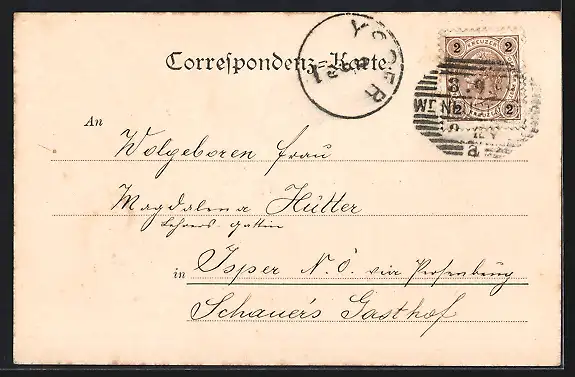 Correspondenz-Karte.
2 KREUZER 2
2 2
YSPER
3. 9.
Wr. Ne
a
An Wolgeboren Frau
Magdalena Hütter
Lehrers-Gattin
in Isper N. Ö. via Persenbeug
Schauers Gasthof